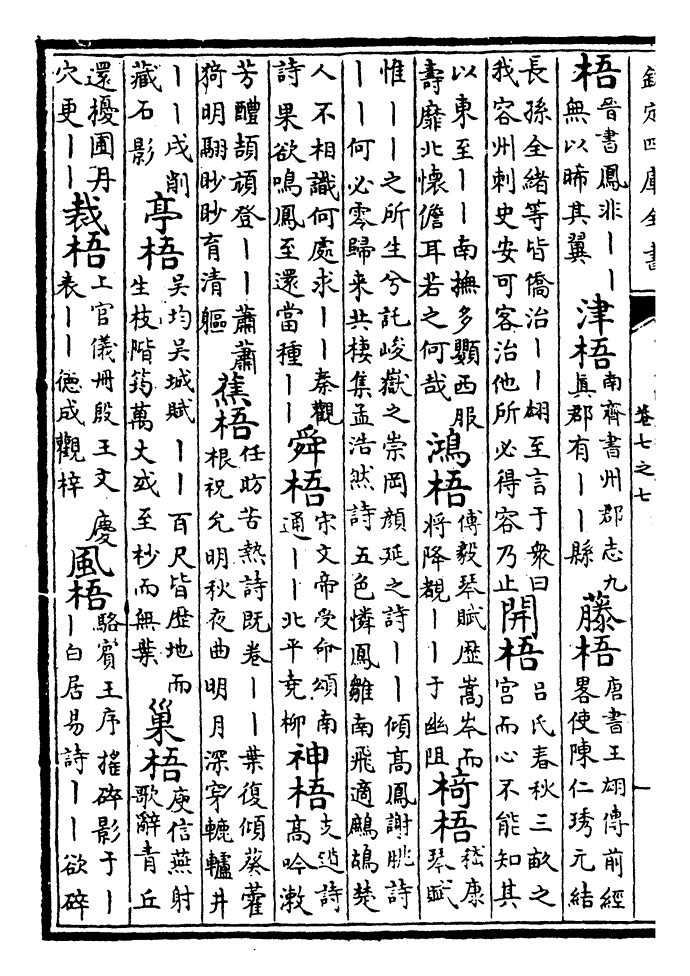 欽定四庫全書
卷七之七
梧
晉書鳳非丨丨
無以晞其翼
津梧
南齊書州郡志九
真郡有丨丨縣
藤梧
唐書王翃傳前經
畧使陳仁琇元結
長孫全緒等皆僑治丨丨翃至言于衆曰
我容州刺史安可客治他所必得容乃止
開梧
呂氏春秋三畝之
宮而心不能知其
以東至丨丨南撫多顟西服
壽靡北懷儋耳若之何哉
鴻梧
傅毅琴賦歴嵩岑而
將降覩丨丨于幽阻
椅梧
嵇康
琴賦
惟丨丨之所生兮託峻嶽之崇岡顔延之詩丨丨傾高鳳謝朓詩
丨丨何必零歸來共棲集孟浩然詩五色憐鳳雛南飛適鷓鴣楚
人不相識何處求丨丨秦觀
詩果欲鳴鳳至還當種丨丨
舜梧
宋文帝受命頌南
通丨丨北平堯柳
神梧
支遁詩
高吟漱
芳醴頡頏登丨丨蕭蕭
猗明翮眇眇育清軀
蕉梧
任昉苦熱詩既卷丨丨葉復傾葵藿
根祝允明秋夜曲明月深穿轆轤井
丨丨戍削
藏石影
亭梧
吳均吳城賦丨丨百尺皆歴地而
生枝階筠萬丈或至杪而無葉
巢梧
庾信燕射
歌辭青丘
還擾圃丹
穴更丨丨
裁梧
上官儀冊殷王文慶
表丨丨德成觀梓
風梧
駱賓王序摇碎影于丨
丨白居易詩丨丨欲碎